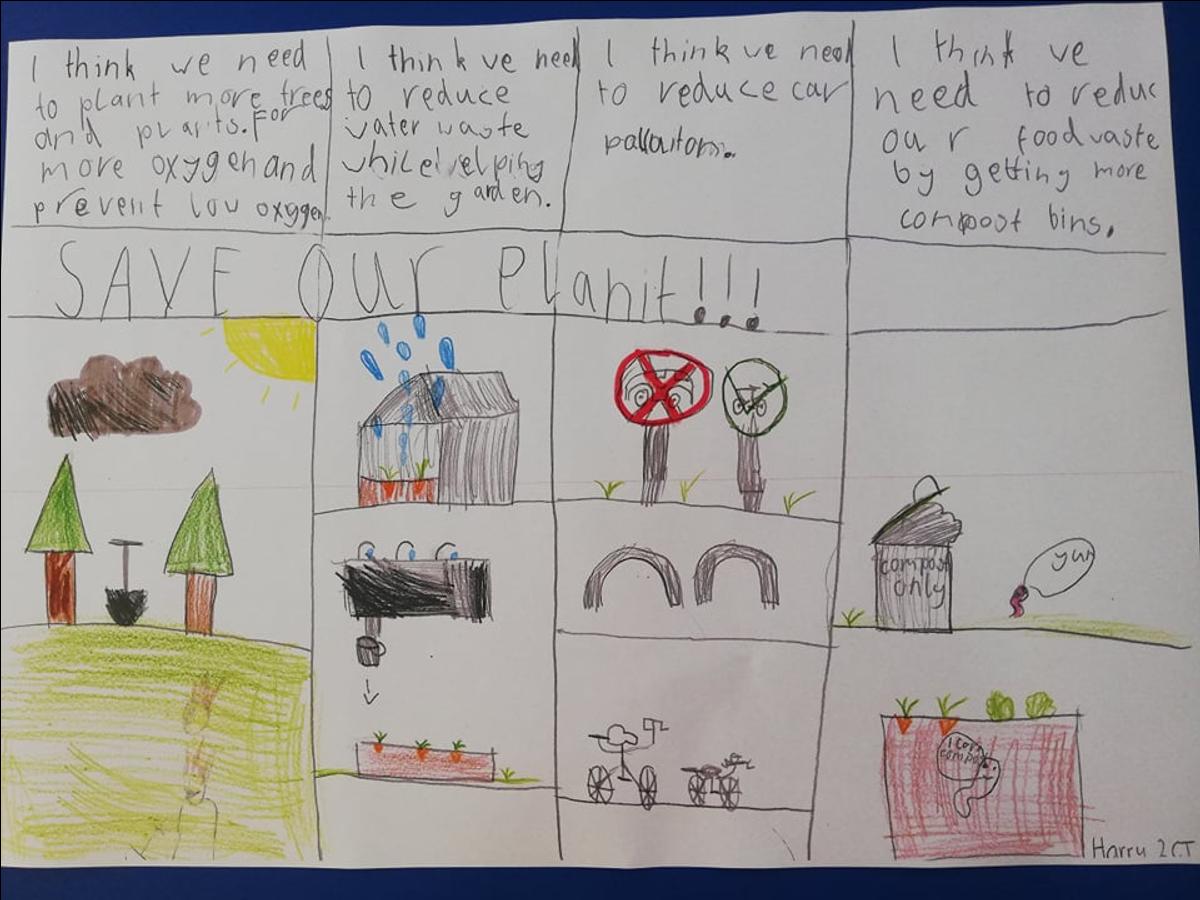 I think we need
to plant more trees
and plants. For
more oxygen and
prevent low oxygen.
I think ve need
to reduce
vater waste
while velping
the garden.
I think ve need
to reduce car
I think ve
need to reduc
our foodvaste
by getting more
compost bins.
SAVE OUr Planit!!!
compost
only
yum
Harry 2CT